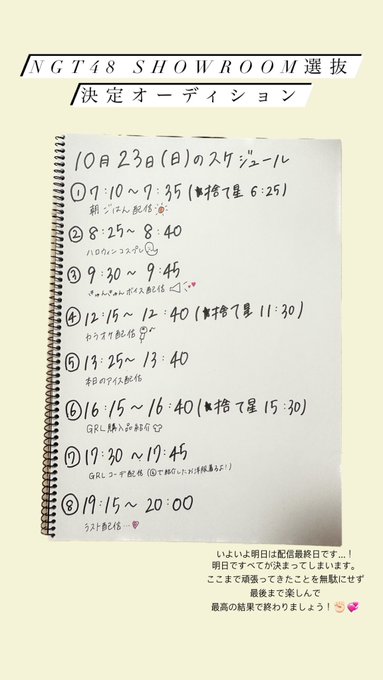 NGT48 SHOWROOM選抜
決定オーディション
10月23日(日)のスケジュール
① 7:10～7:35 (捨て星 6:25)
朝ごはん配信
② 8:25～8:40
ハロウィンコスプレ
③ 9:30～9:45
きゅんきゅんボイス配信
④ 12:15～12:40 (捨て星 11:30)
カラオケ配信
⑤ 13:25～13:40
本日のアイス配信
⑥ 16:15～16:40 (捨て星 15:30)
GRL購入品紹介
⑦ 17:30～17:45
GRLコーデ配信 (⑥で紹介したお洋服着るよ!)
⑧ 19:15～20:00
ラスト配信…
いよいよ明日は配信最終日です...！
明日ですべてが決まってしまいます。
ここまで頑張ってきたことを無駄にせず
最後まで楽しんで
最高の結果で終わりましょう！✊🏻💞